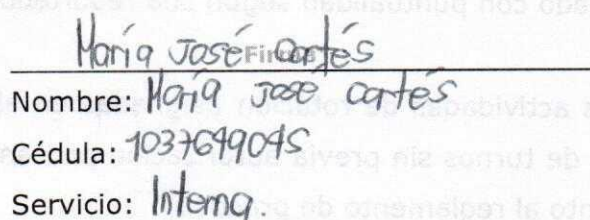 María José Cortés
Firma
Nombre: María José cortés
Cédula: 1037649045
Servicio: Interna.